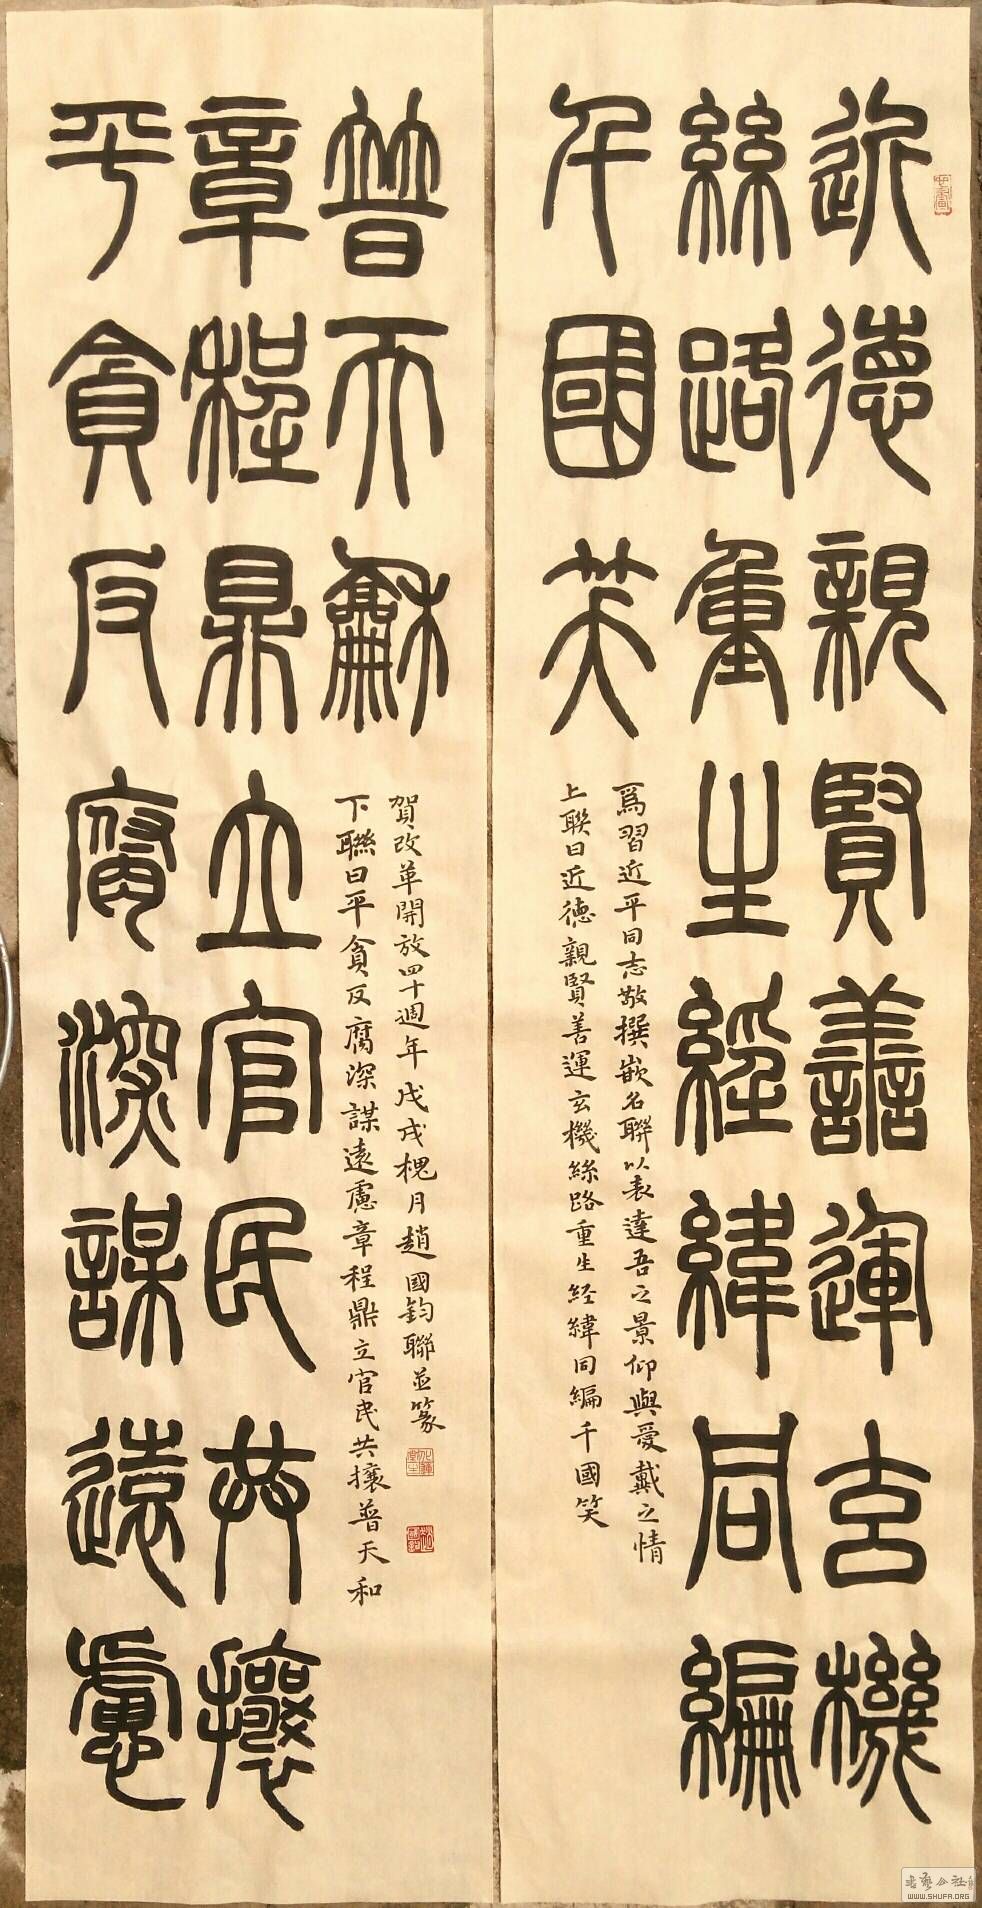 近德親賢善運玄機
絲路重生經緯同編
千國笑
爲習近平同志敬撰嵌名聯以表達吾之景仰與愛戴之情
上聯曰近德親賢善運玄機絲路重生经緯同編千國笑
普天龢
章程鼎立官民共攘
平貪反腐深謀遠慮
賀改革開放四十週年戊戌槐月趙國鈞聯並篆
下聯曰平貪反腐深謀遠慮章程鼎立官民共攘普天和
WWW.SHUFA.ORG